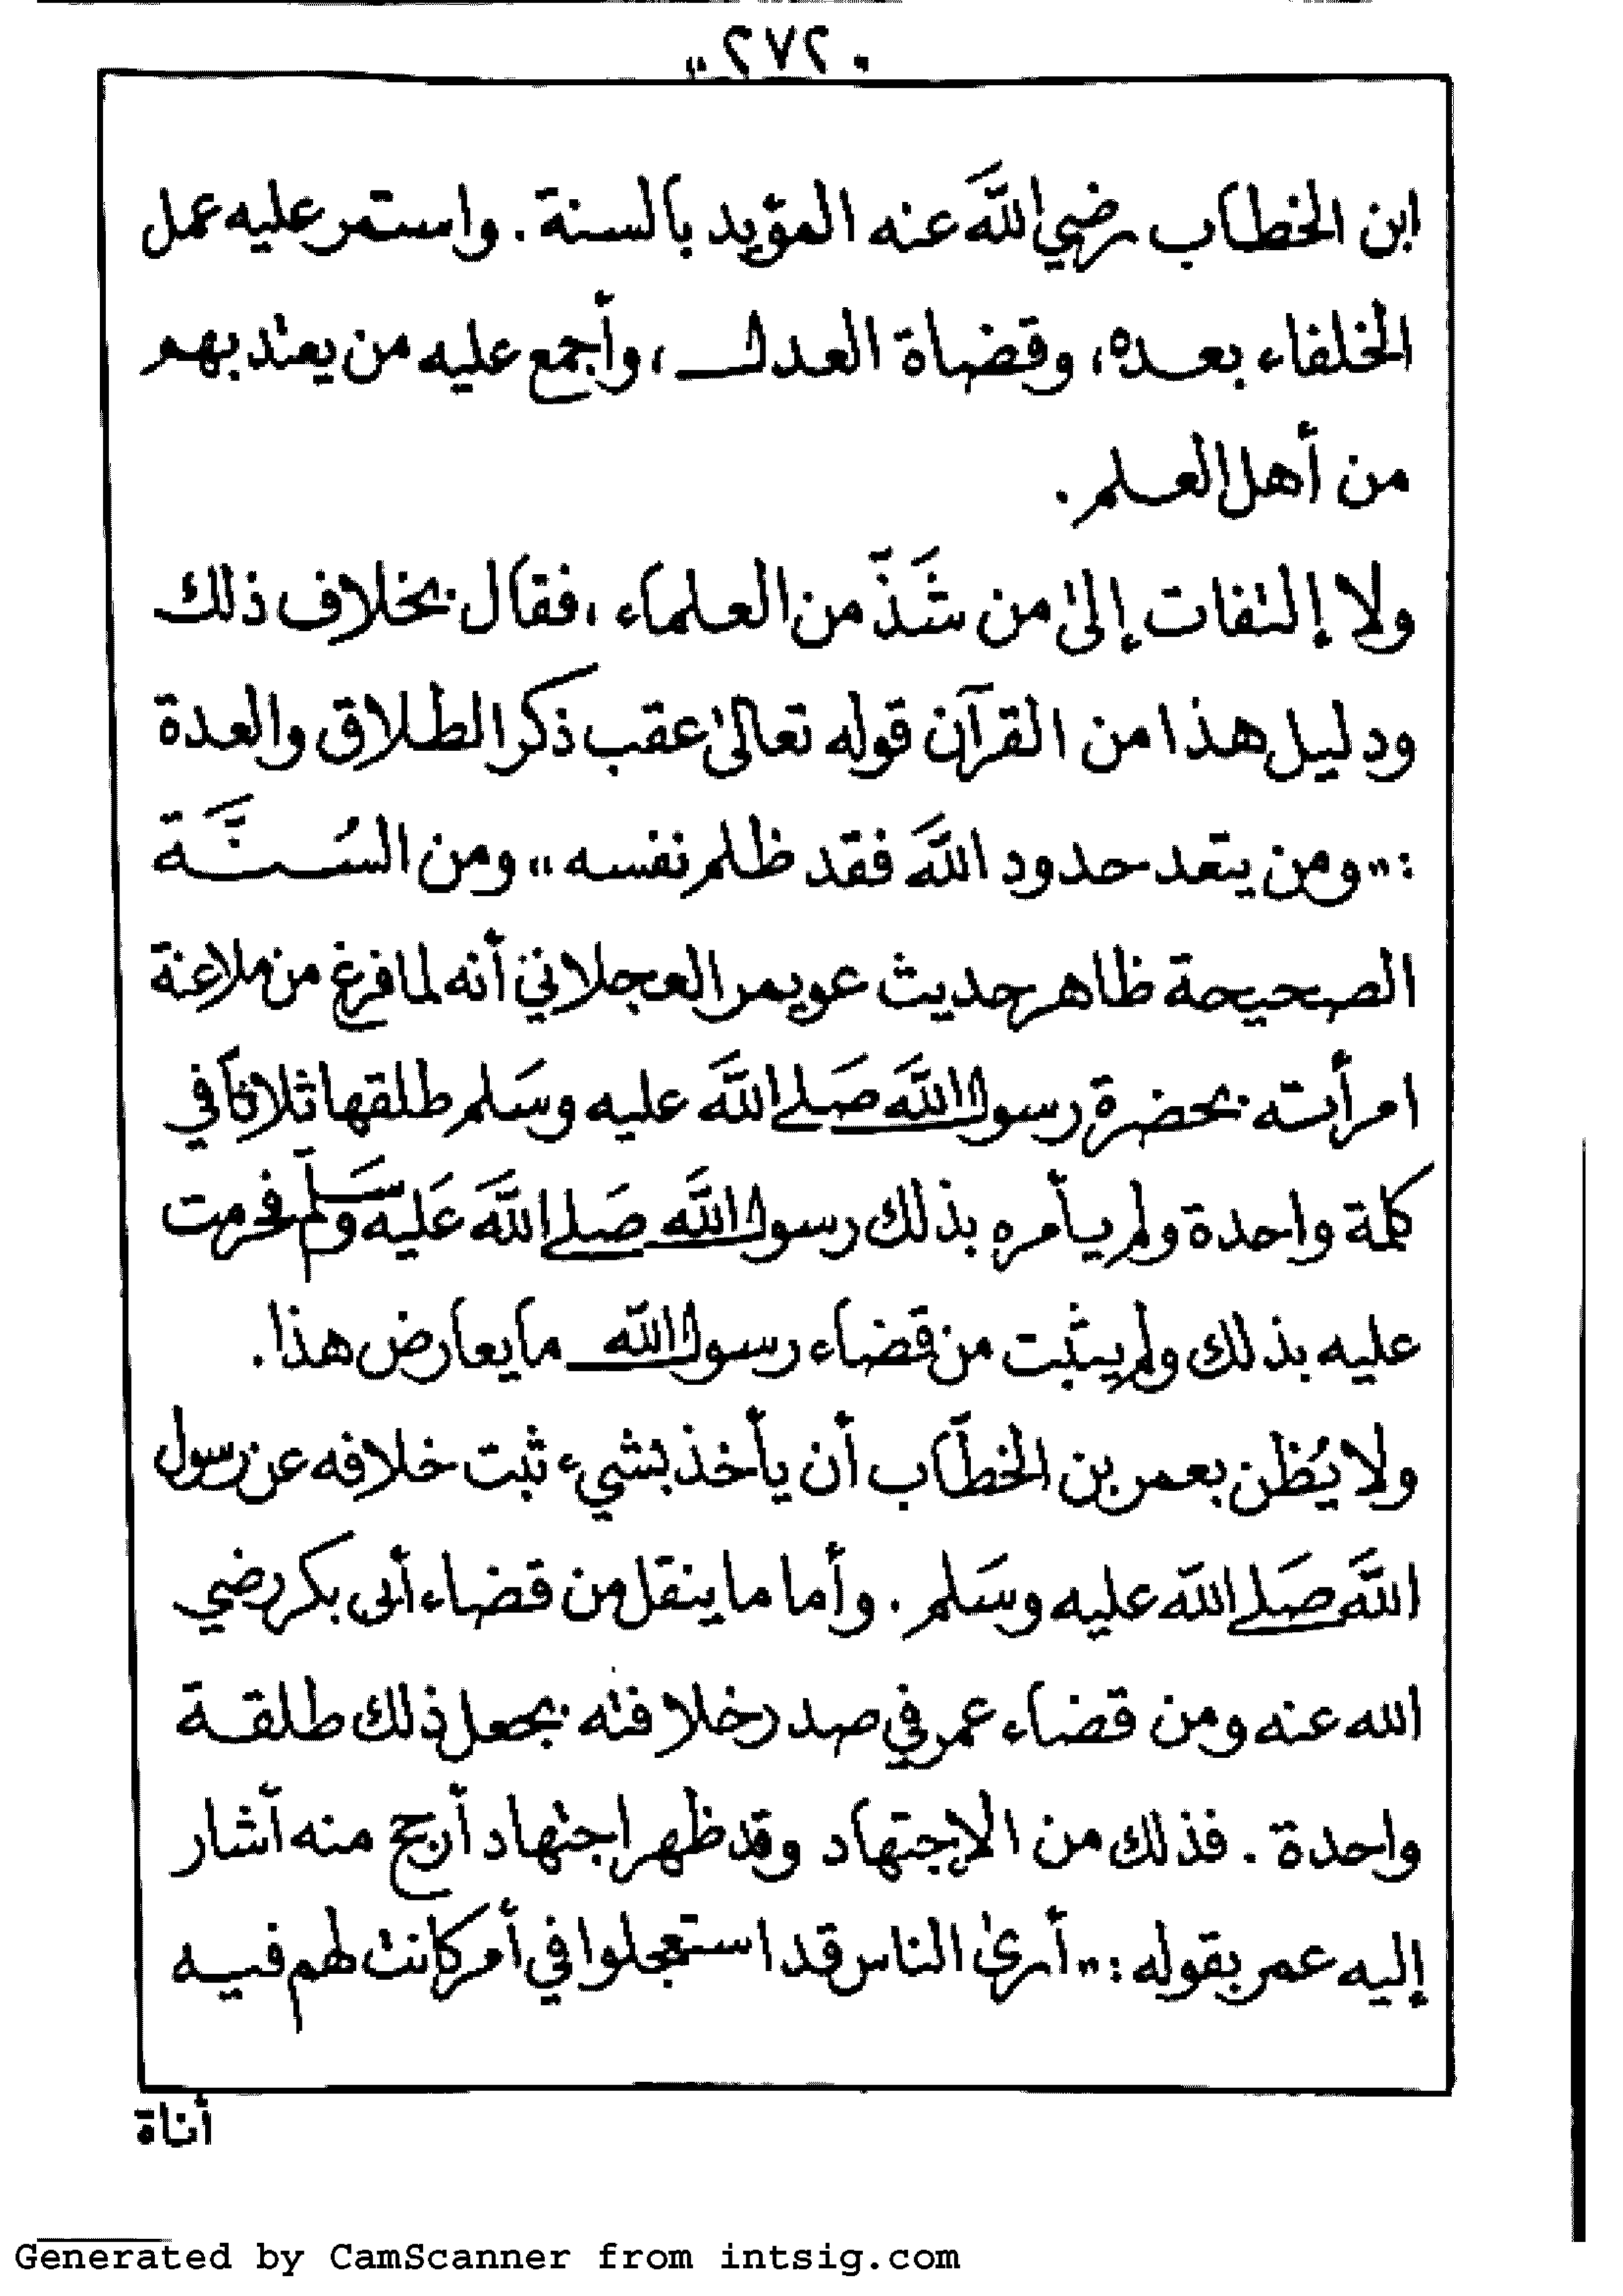 ٢٧٢
ابن الخطاب رضي اللَّه عنه المؤيد بالسنة. واستمر عليه عمل
الخلفاء بعده، وقضاة العدل، وأجمع عليه من يعتد بهم
من أهل العلم.
ولا إلتفات إلىٰ من شَذّ من العلماء، فقال بخلاف ذلك
ودليل هذا من القرآن قوله تعالىٰ عقب ذكر الطلاق والعدة
:"ومن يتعد حدود اللَّه فقد ظلم نفسه" ومن السُنَّة
الصحيحة ظاهر حديث عويمر العجلاني أنه لما فرغ من ملاعنة
امرأته بحضرة رسول اللَّه صَلى اللَّه عليه وسَلم طلقها ثلاثاً في
كلمة واحدة ولم يأمره بذلك رسول اللَّه صَلى اللَّه عَليه وسَلم فحرمت
عليه بذلك ولم يثبت من قضاء رسول اللّه ما يعارض هذا.
ولا يُظن بعمر بن الخطّاب أن يأخذ بشيء ثبت خلافه عن رسول
اللَّه صَلى اللّه عليه وسَلم. وأما ما ينقل من قضاء أبى بكر رضي
الله عنه ومن قضاء عمر في صدر خلافته بجعل ذلك طلقة
واحدة. فذلك من الاجتهاد وقد ظهر اجتهاد أرجح منه أشار
إليه عمر بقوله:"أرىٰ الناس قد استعجلوا في أمر كانت لهم فيه
أناة
Generated by CamScanner from intsig.com